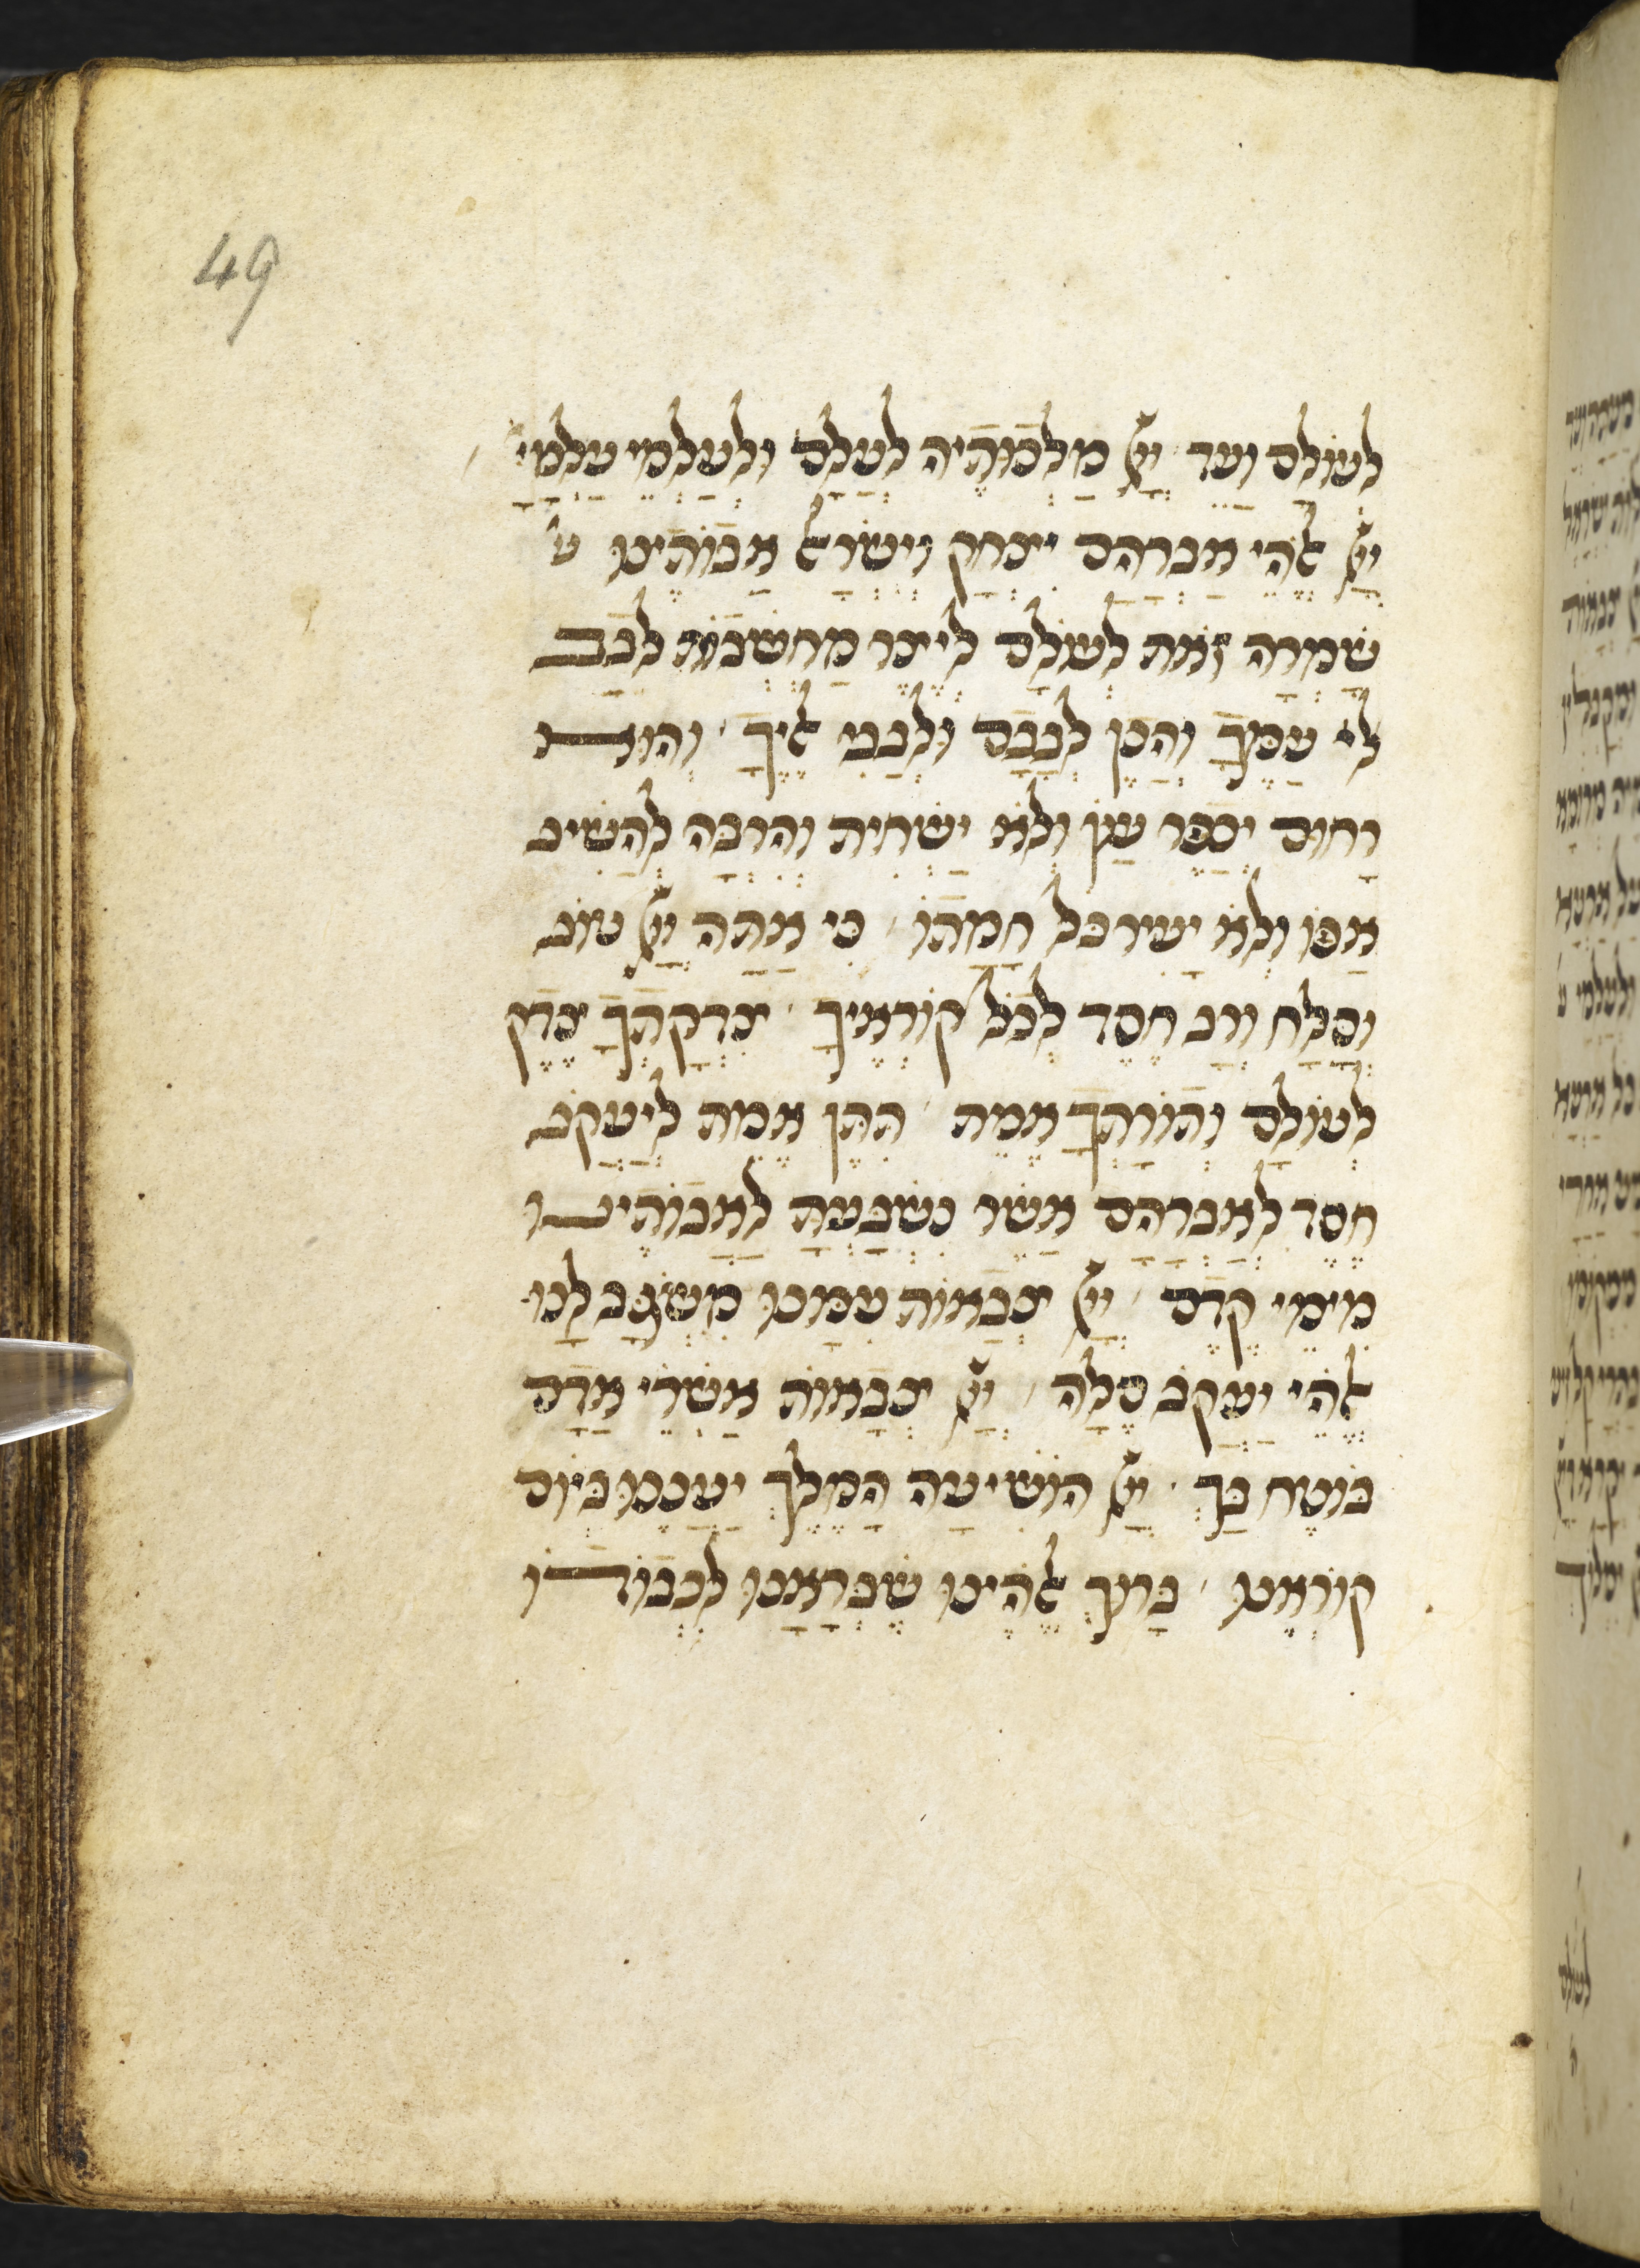 49
לעולם ועד יי מלכותיה לעלם ולעלמי עלמי
יי אלהי אברהם יצחק וישראל אבותינו ש'
שמרה זאת לעולם ליצר מחשבות לבב
עמך והכן לבבם אליך והוא
רחום יכפר עון ולא ישחית והרבה להשיב
אפו ולא יעיר כל חמתו כי אתה יי טוב
וסלח ורב חסד לכל קוראיך צדקתך צדק
לעולם ותורתך אמת תתן אמת ליעקב
חסד לאברהם אשר נשבעת לאבותינו
מימי קדם יי צבאות עמנו משגב לנו
אלהי יעקב סלה יי צבאות אשרי אדם
בוטח בך יי הושיעה המלך יעננו ביום
קוראנו ברוך אלהינו שבראנו לכבודו